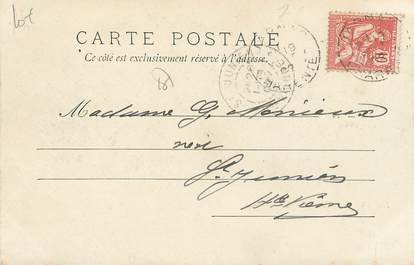 Lot
CARTE POSTALE
Ce côté est exclusivement réservé à l'adresse.
Madame G. Monieux
St Junien
Hte Vienne